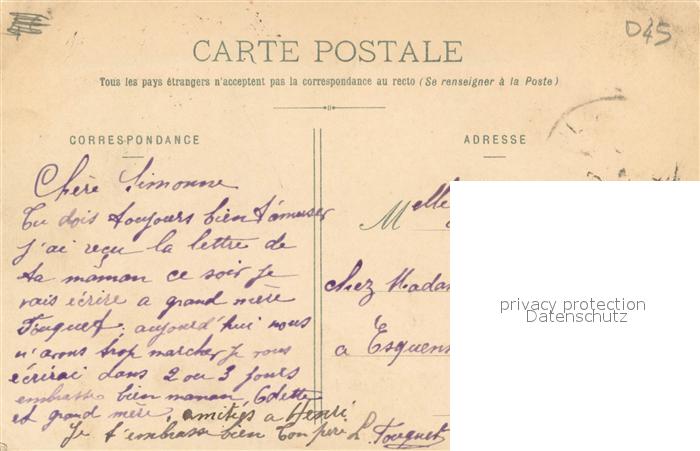 D45
CARTE POSTALE
Tous les pays étrangers n'acceptent pas la correspondance au recto (Se renseigner à la Poste)
CORRESPONDANCE
ADRESSE
Chère Simonne
Tu dois toujours bien t'amuser
j'ai reçu la lettre de
ta maman ce soir je
vais écrire a grand mère
Touquet. aujourd'hui nous
n'avons trop marcher je vous
écrirai dans 2 ou 3 jours
embrasse bien maman, Odette
et grand mère. amitiés a Henri
Je t'embrasse bien ton père L. Touquet
Melle
chez Madam
a Esquenn
privacy protection
Datenschutz